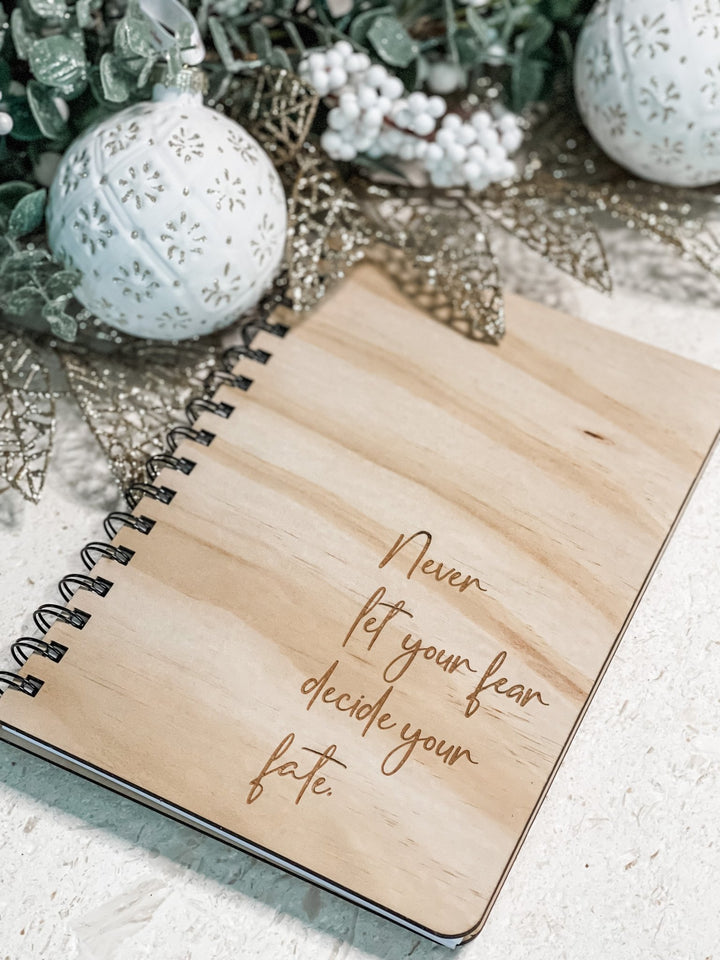 Never
let your fear
decide your
fate.